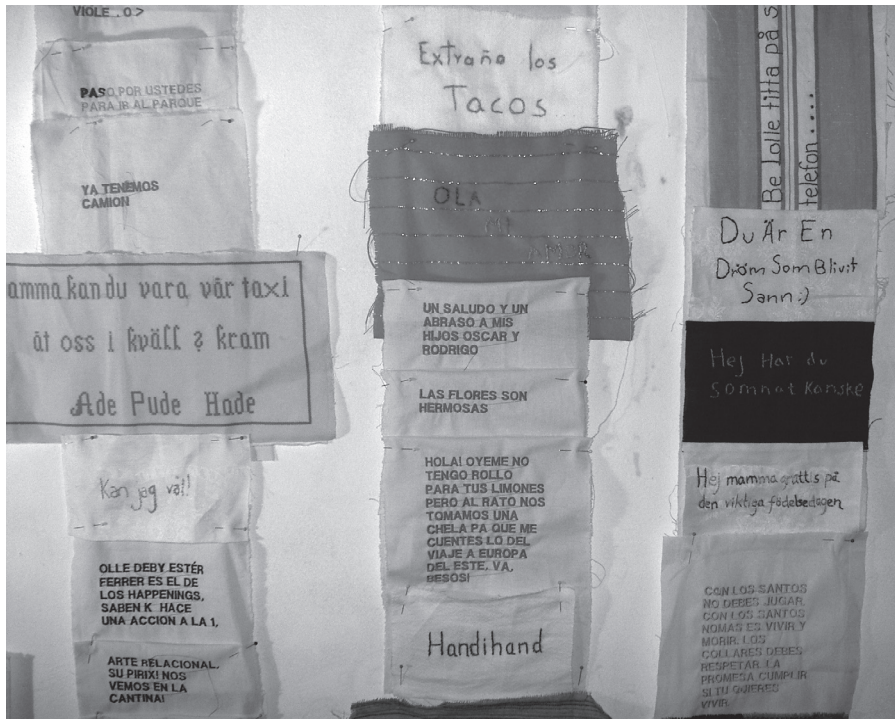 VIOLE . O>
PASO POR USTEDES
PARA IR AL PARQUE
YA TENEMOS
CAMION
amma kan du vara vår taxi
åt oss i kväll ? kram
Ade Pude Hade
Kan jag väl!
OLLE DEBY ESTÉR
FERRER ES EL DE
LOS HAPPENINGS,
SABEN K HACE
UNA ACCION A LA 1,
ARTE RELACIONAL,
SU PIRIX! NOS
VEMOS EN LA
CANTINA!
Extraño los
Tacos
OLA
MI
AMOR
UN SALUDO Y UN
ABRASO A MIS
HIJOS OSCAR Y
RODRIGO
LAS FLORES SON
HERMOSAS
HOLA! OYEME NO
TENGO ROLLO
PARA TUS LIMONES
PERO AL RATO NOS
TOMAMOS UNA
CHELA PA QUE ME
CUENTES LO DEL
VIAJE A EUROPA
DEL ESTE, VA,
BESOS!
Handihand
Be Lolle titta på s
telefon ....
Du Är En
Dröm Som Blivit
Sann :)
Hej Har du
Somnat Kanske
Hej mamma grattis på
den viktiga födelsedagen
CON LOS SANTOS
NO DEBES JUGAR,
CON LOS SANTOS
NOMAS ES VIVIR Y
MORIR, LOS
COLLARES DEBES
RESPETAR, LA
PROMESA CUMPLIR
SI TU QUIERES
VIVIR